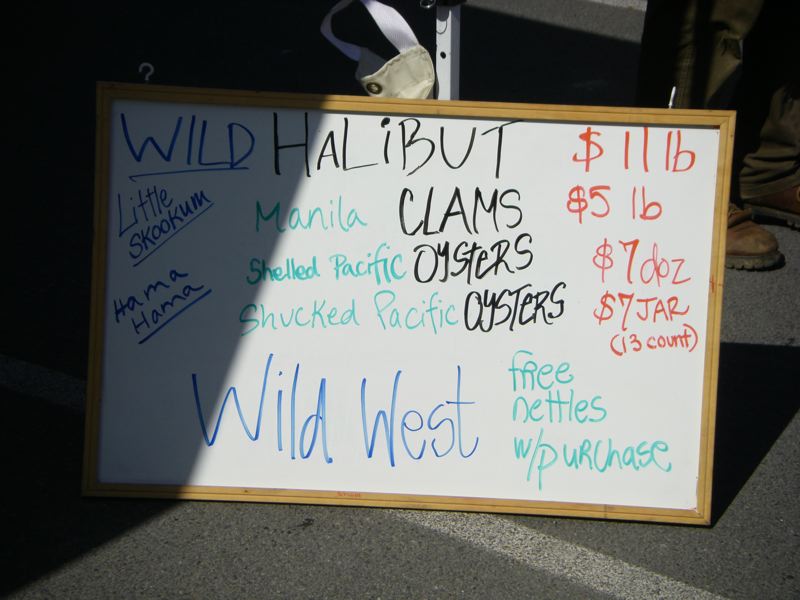 WILD HALiBUT $11 lb
Little Skookum
Manila CLAMS $5 lb
Shelled Pacific OysterS $7 doz
Hama Hama
Shucked Pacific OYSTERS $7 JAR
(13 count)
Wild West
free
nettles
w/purchase